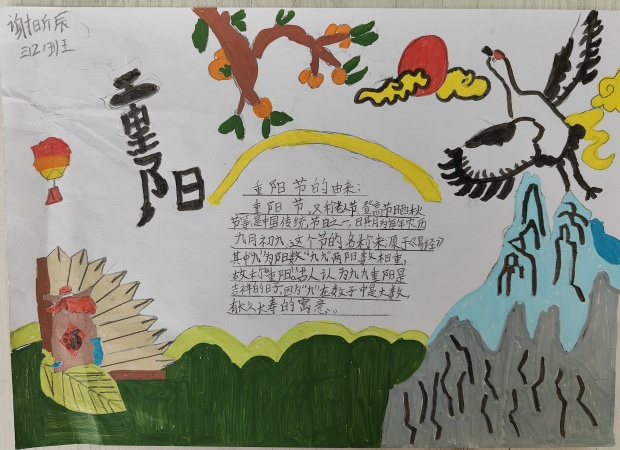 谢昕辰
三(2)班
重阳
重阳节的由来：
重阳节,又称老人节、登高节、晒秋
节等,是中国传统节日之一,日期为每年农历
九月初九,这个节的名称来源于《易经》
其中"九"为阳数,"九九"两阳数相重,
故本"重阳",古人认为九九重阳是
吉祥的日子,因为"九"在数字中是大数,
有长久长寿的寓意。